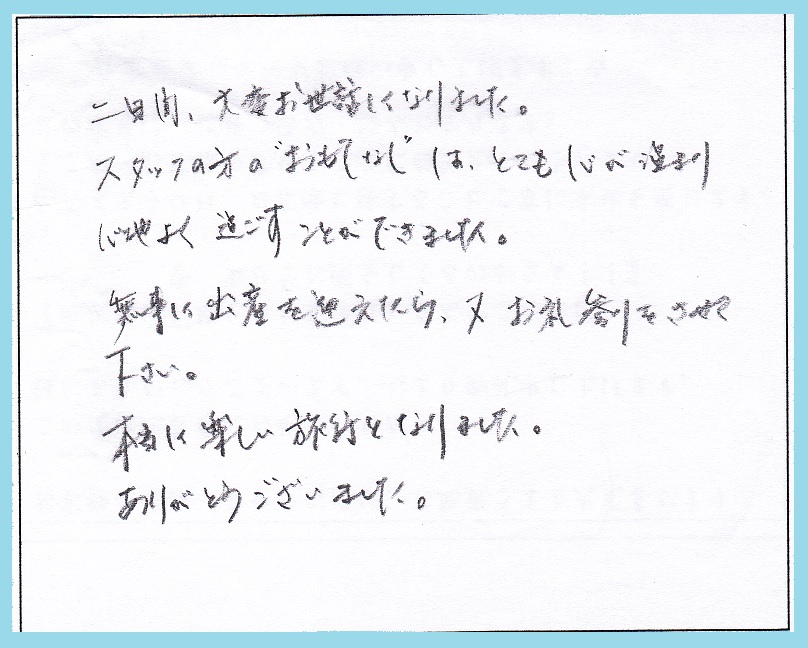 二日間、大変お世話になりました。
スタッフの方の"おもてなし"は、とても心が温まり
心地よく過ごすことができました。
無事に出産を迎えたら、又お礼参りをさせて
下さい。
本当に楽しい旅行となりました。
ありがとうございました。